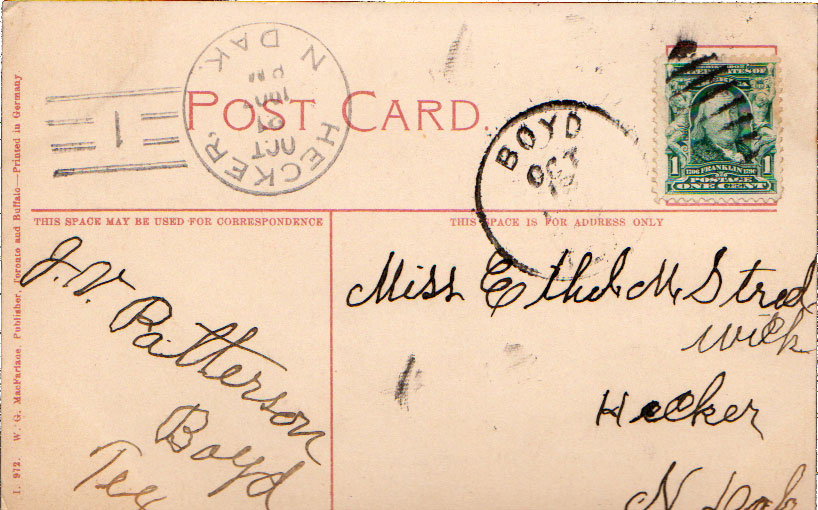 POST CARD.
HECKER,
N DAK
OCT
21
PM
1
BOYD
OCT
UNITED STATES OF
1706 FRANKLIN 1790
1 POSTAGE 1
ONE CENT
THIS SPACE MAY BE USED FOR CORRESPONDENCE
THIS SPACE IS FOR ADDRESS ONLY
J. V. Patterson
Boyd
Tex
Miss Ethel M. Strod
wick
Hecker
N Dak
I. 972. W. G. MacFarlane, Publisher, Toronto and Buffalo—Printed in Germany